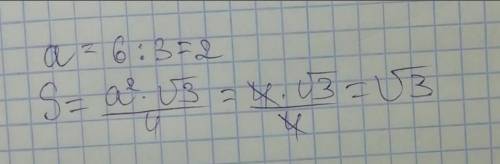 a = 6 : 3 = 2
S = a² · √3 / 4 = 4 · √3 / 4 = √3